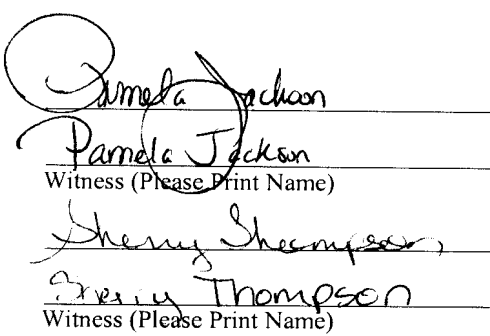 Pamela Jackson
Pamela Jackson
Witness (Please Print Name)
Sherry Thompson
Sherry Thompson
Witness (Please Print Name)